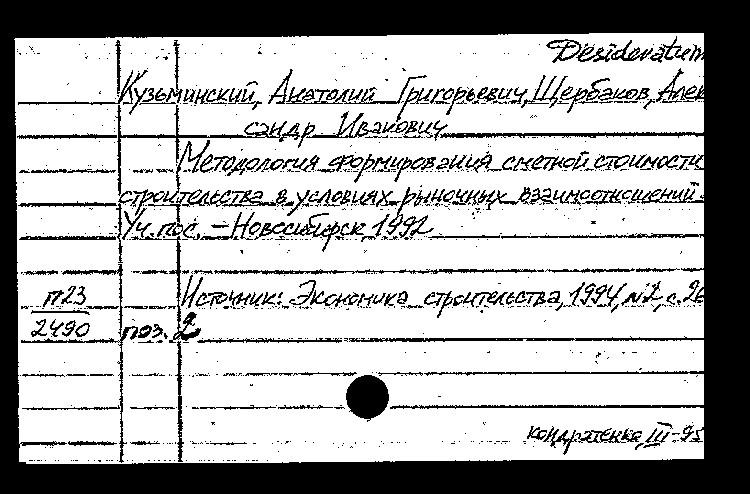 Desideratum
Кузьминский, Анатолий Григорьевич, Щербаков, Алек
сандр Иванович
Методология формирования сметной стоимости
строительства в условиях рыночных взаимоотношений.
Уч. пос. – Новосибирск, 1992
п23 Источник: Экономика строительства, 1994, №2, с. 26
2490 поз. 2
Кондратенко III-95